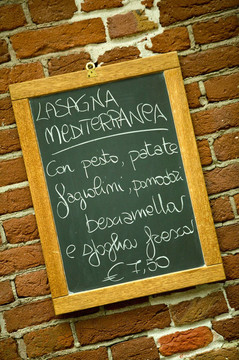 LASAGNA
MEDITERRANEA
Con pesto, patate
fagiolini, pomodori
besciamella
e sfoglia fresca!
€ 7,50